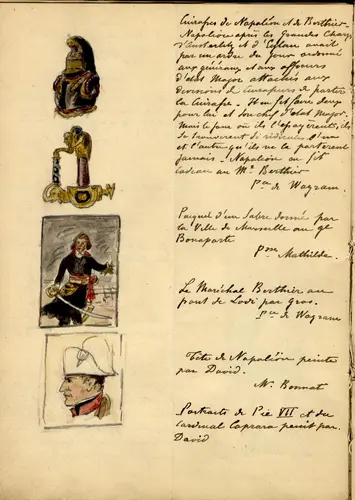 Cuirasses de Napoléon & de Berthier.
Napoléon après les Grandes Charges
d'Austerlitz & d'Eylau avait
par un ordre du jour ordonné
aux généraux et aux officiers
d'état Major attachés aux
divisions de Cuirassiers de porter
la Cuirasse. Il en fit faire deux
pour lui et son chef d'état Major.
Mais le jour où ils l'essayèrent, ils
se trouvèrent si ridicules l'un
et l'autre qu'ils ne la portèrent
jamais. Napoléon en fit
cadeau au Mal Berthier
Pce de Wagram.
d'un Sabre donné par
la Ville de Marseille au gl
Bonaparte
Pesse Mathilde.
Le Maréchal Berthier au
pont de Lodi par Gros.
Pce de Wagram
Tête de Napoléon peinte
par David.
Mr. Bonnat
Portraits de Pie VII et du
Cardinal Caprara peint par
David